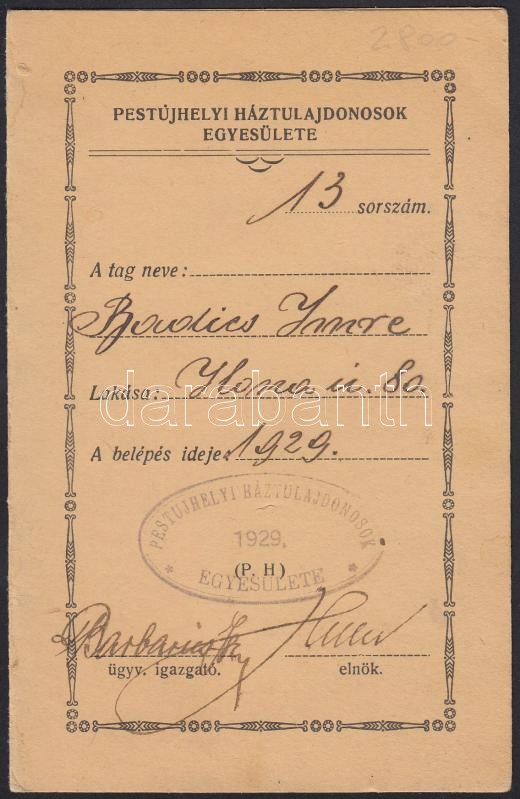 2800-
PESTÚJHELYI HÁZTULAJDONOSOK
EGYESÜLETE
13 sorszám.
A tag neve:
Badics Imre
Lakása: Ilona ú. 80
darabanth
A belépés ideje: 1929.
PESTUJHELYI HÁZTULAJDONOSOK
1929.
(P. H)
* EGYESÜLETE *
ügyv. igazgató. elnök.